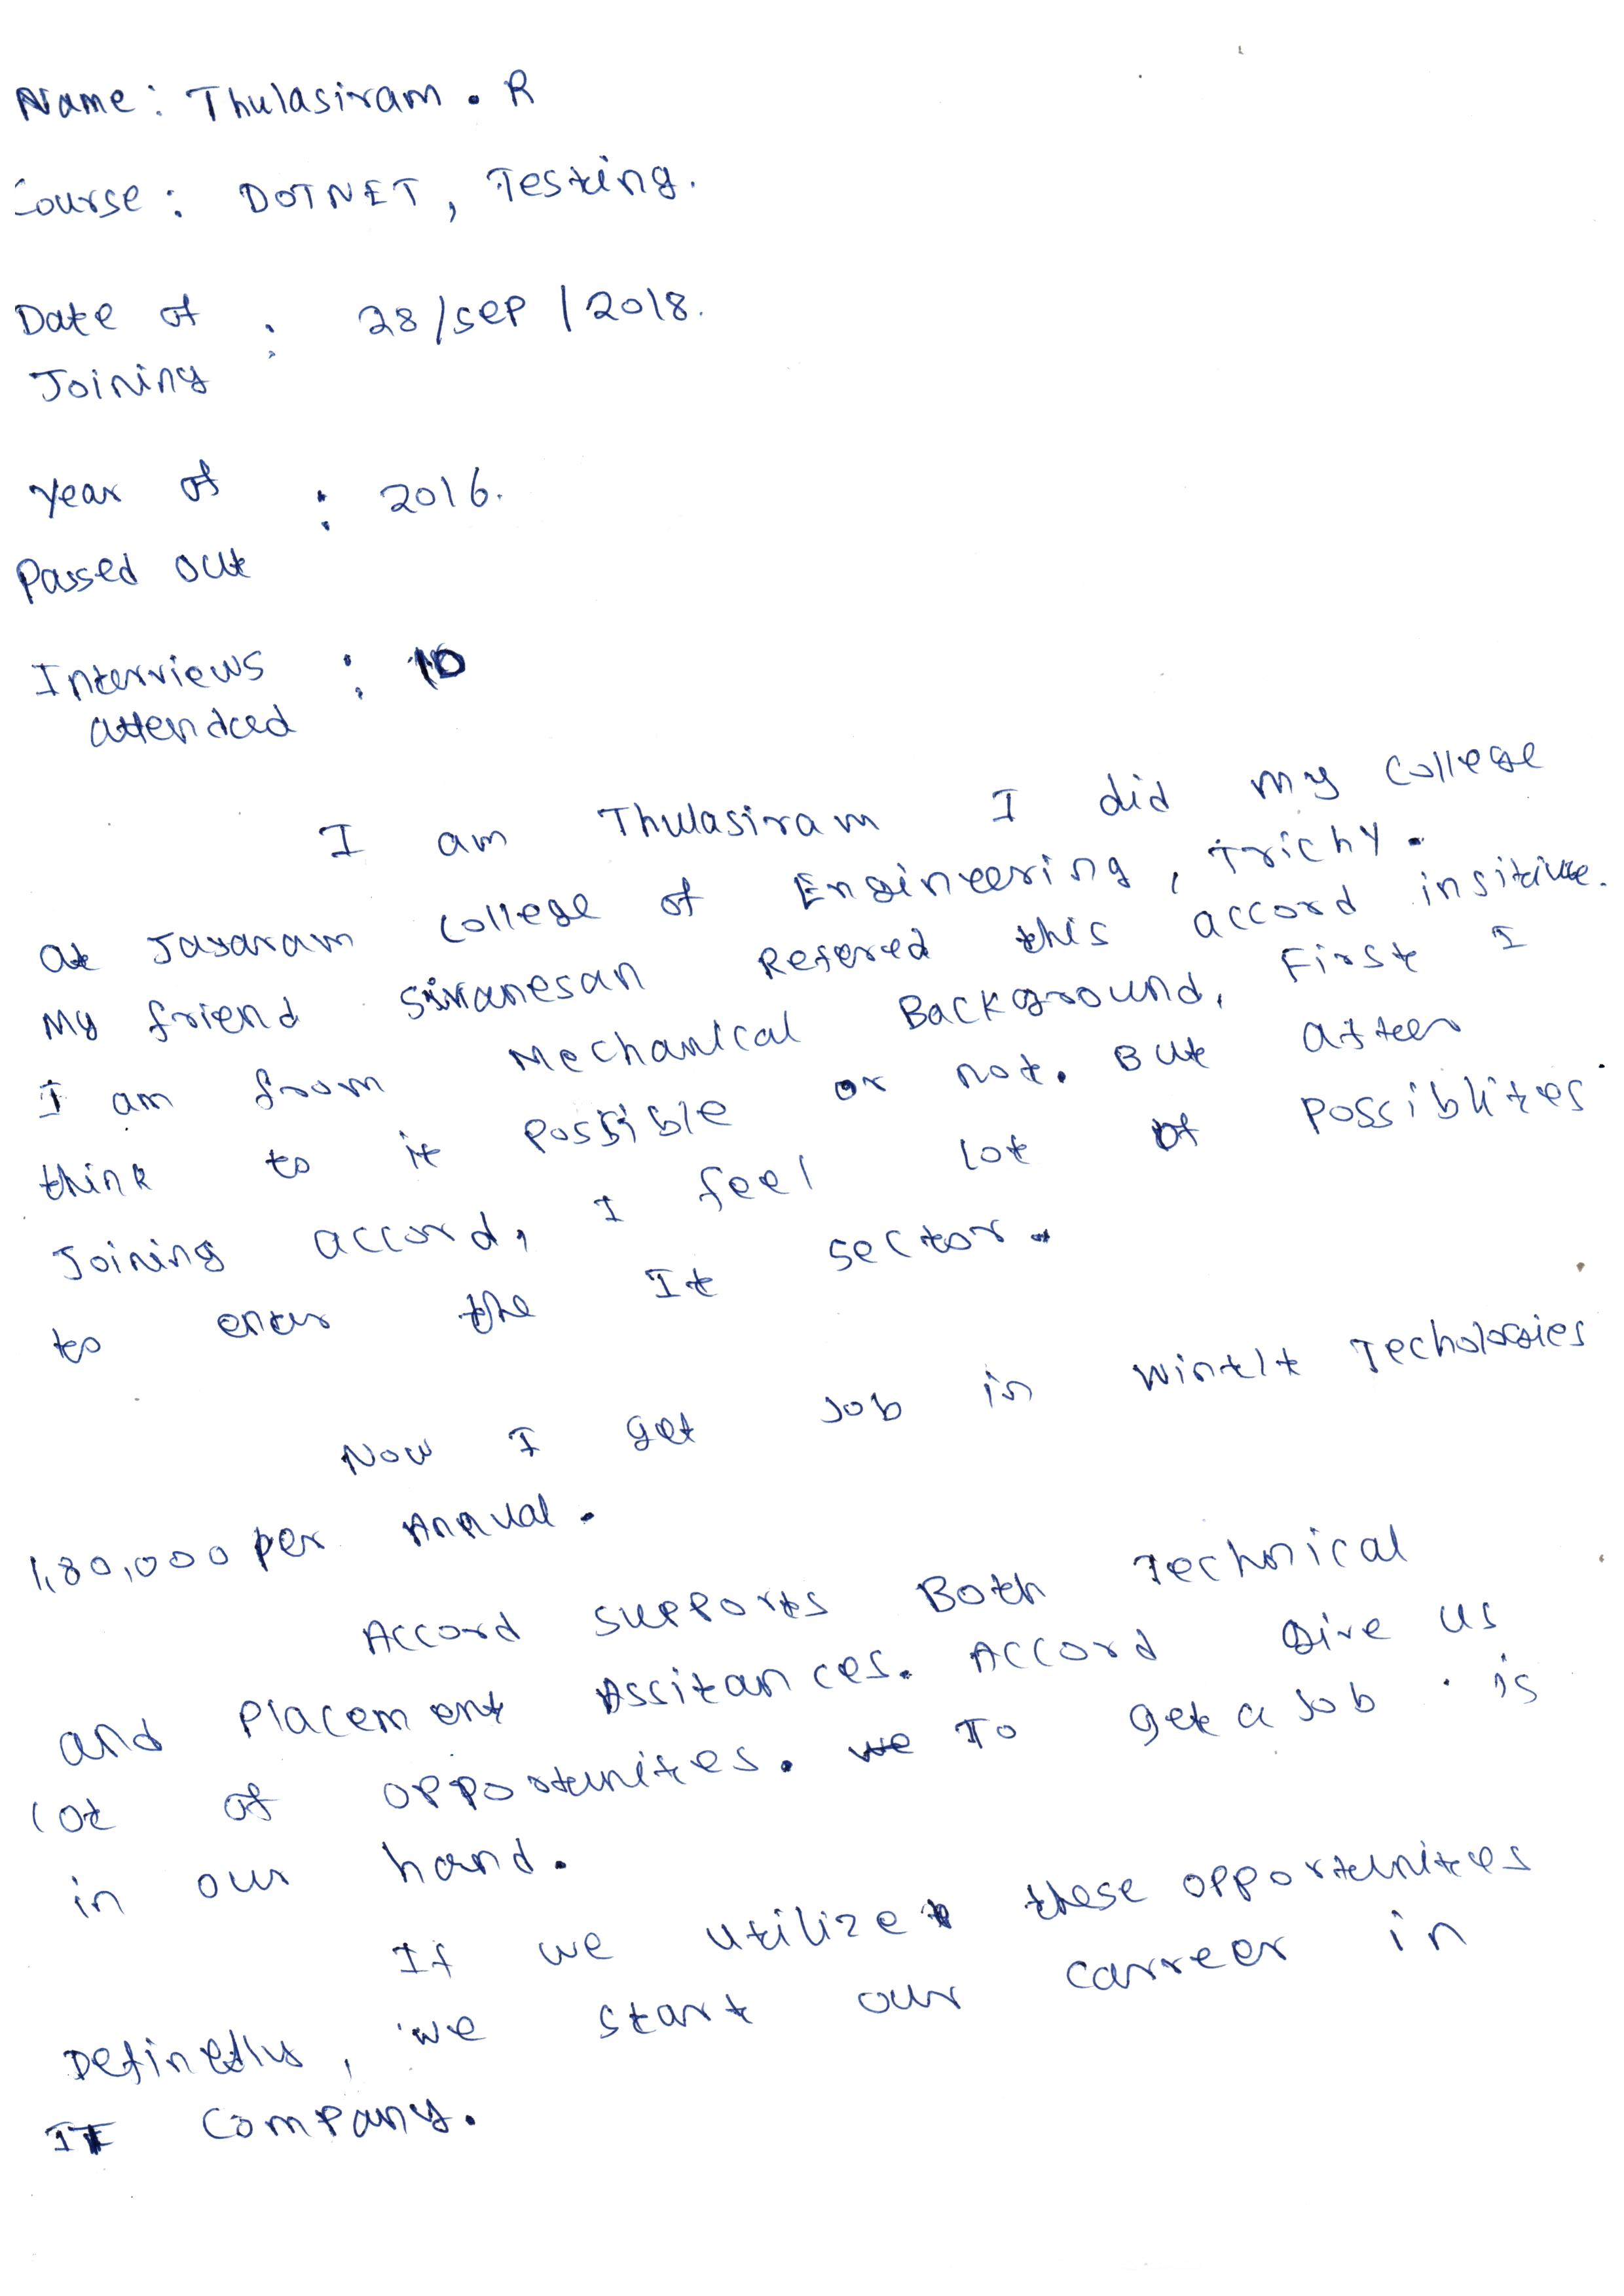 Name : Thulasiram . R
Course : DOTNET, Testing.
Date of : 28/Sep/2018.
Joining
Year of : 2016.
Passed out
Interviews : 10
attended
I am Thulasiram I did my College
at Jayaram College of Engineering, Trichy.
My friend Sivanesan Refered this accord insitiute.
I am from Mechanical Background, First I
think to it possible or not. But after
Joining accord, I feel lot of Possiblites
to enter the It sector.
Now I get Job in WintIt Techologies
1,80,000 per Annual.
Accord supports Both Technical
and Placement Assitances. Accord Give us
lot of opportunites. we To get a Job is
in our hand.
If we utilize these opportunites
Definetly, we start our carreer in
IT Company.